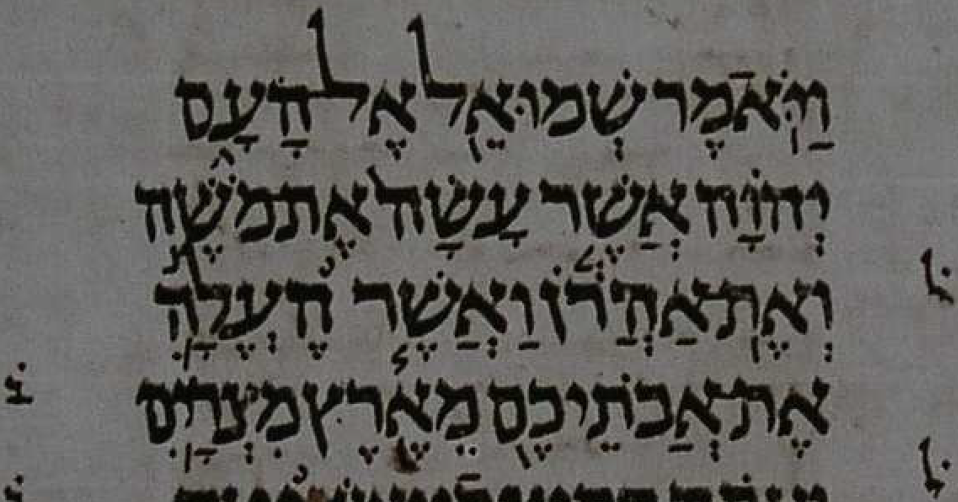 וַיֹּאמֶר שְׁמוּאֵל אֶל הָעָם
יְהוָֹה אֲשֶׁר עָשָׂה אֶת מֹשֶׁה
ל̇
וְאֶת־אַהֲרֹן וַאֲשֶׁר הֶעְלָה
אֶת־אֲבֹתֵיכֶם מֵאֶרֶץ מִצְרָיִם
ב̇
ל̇